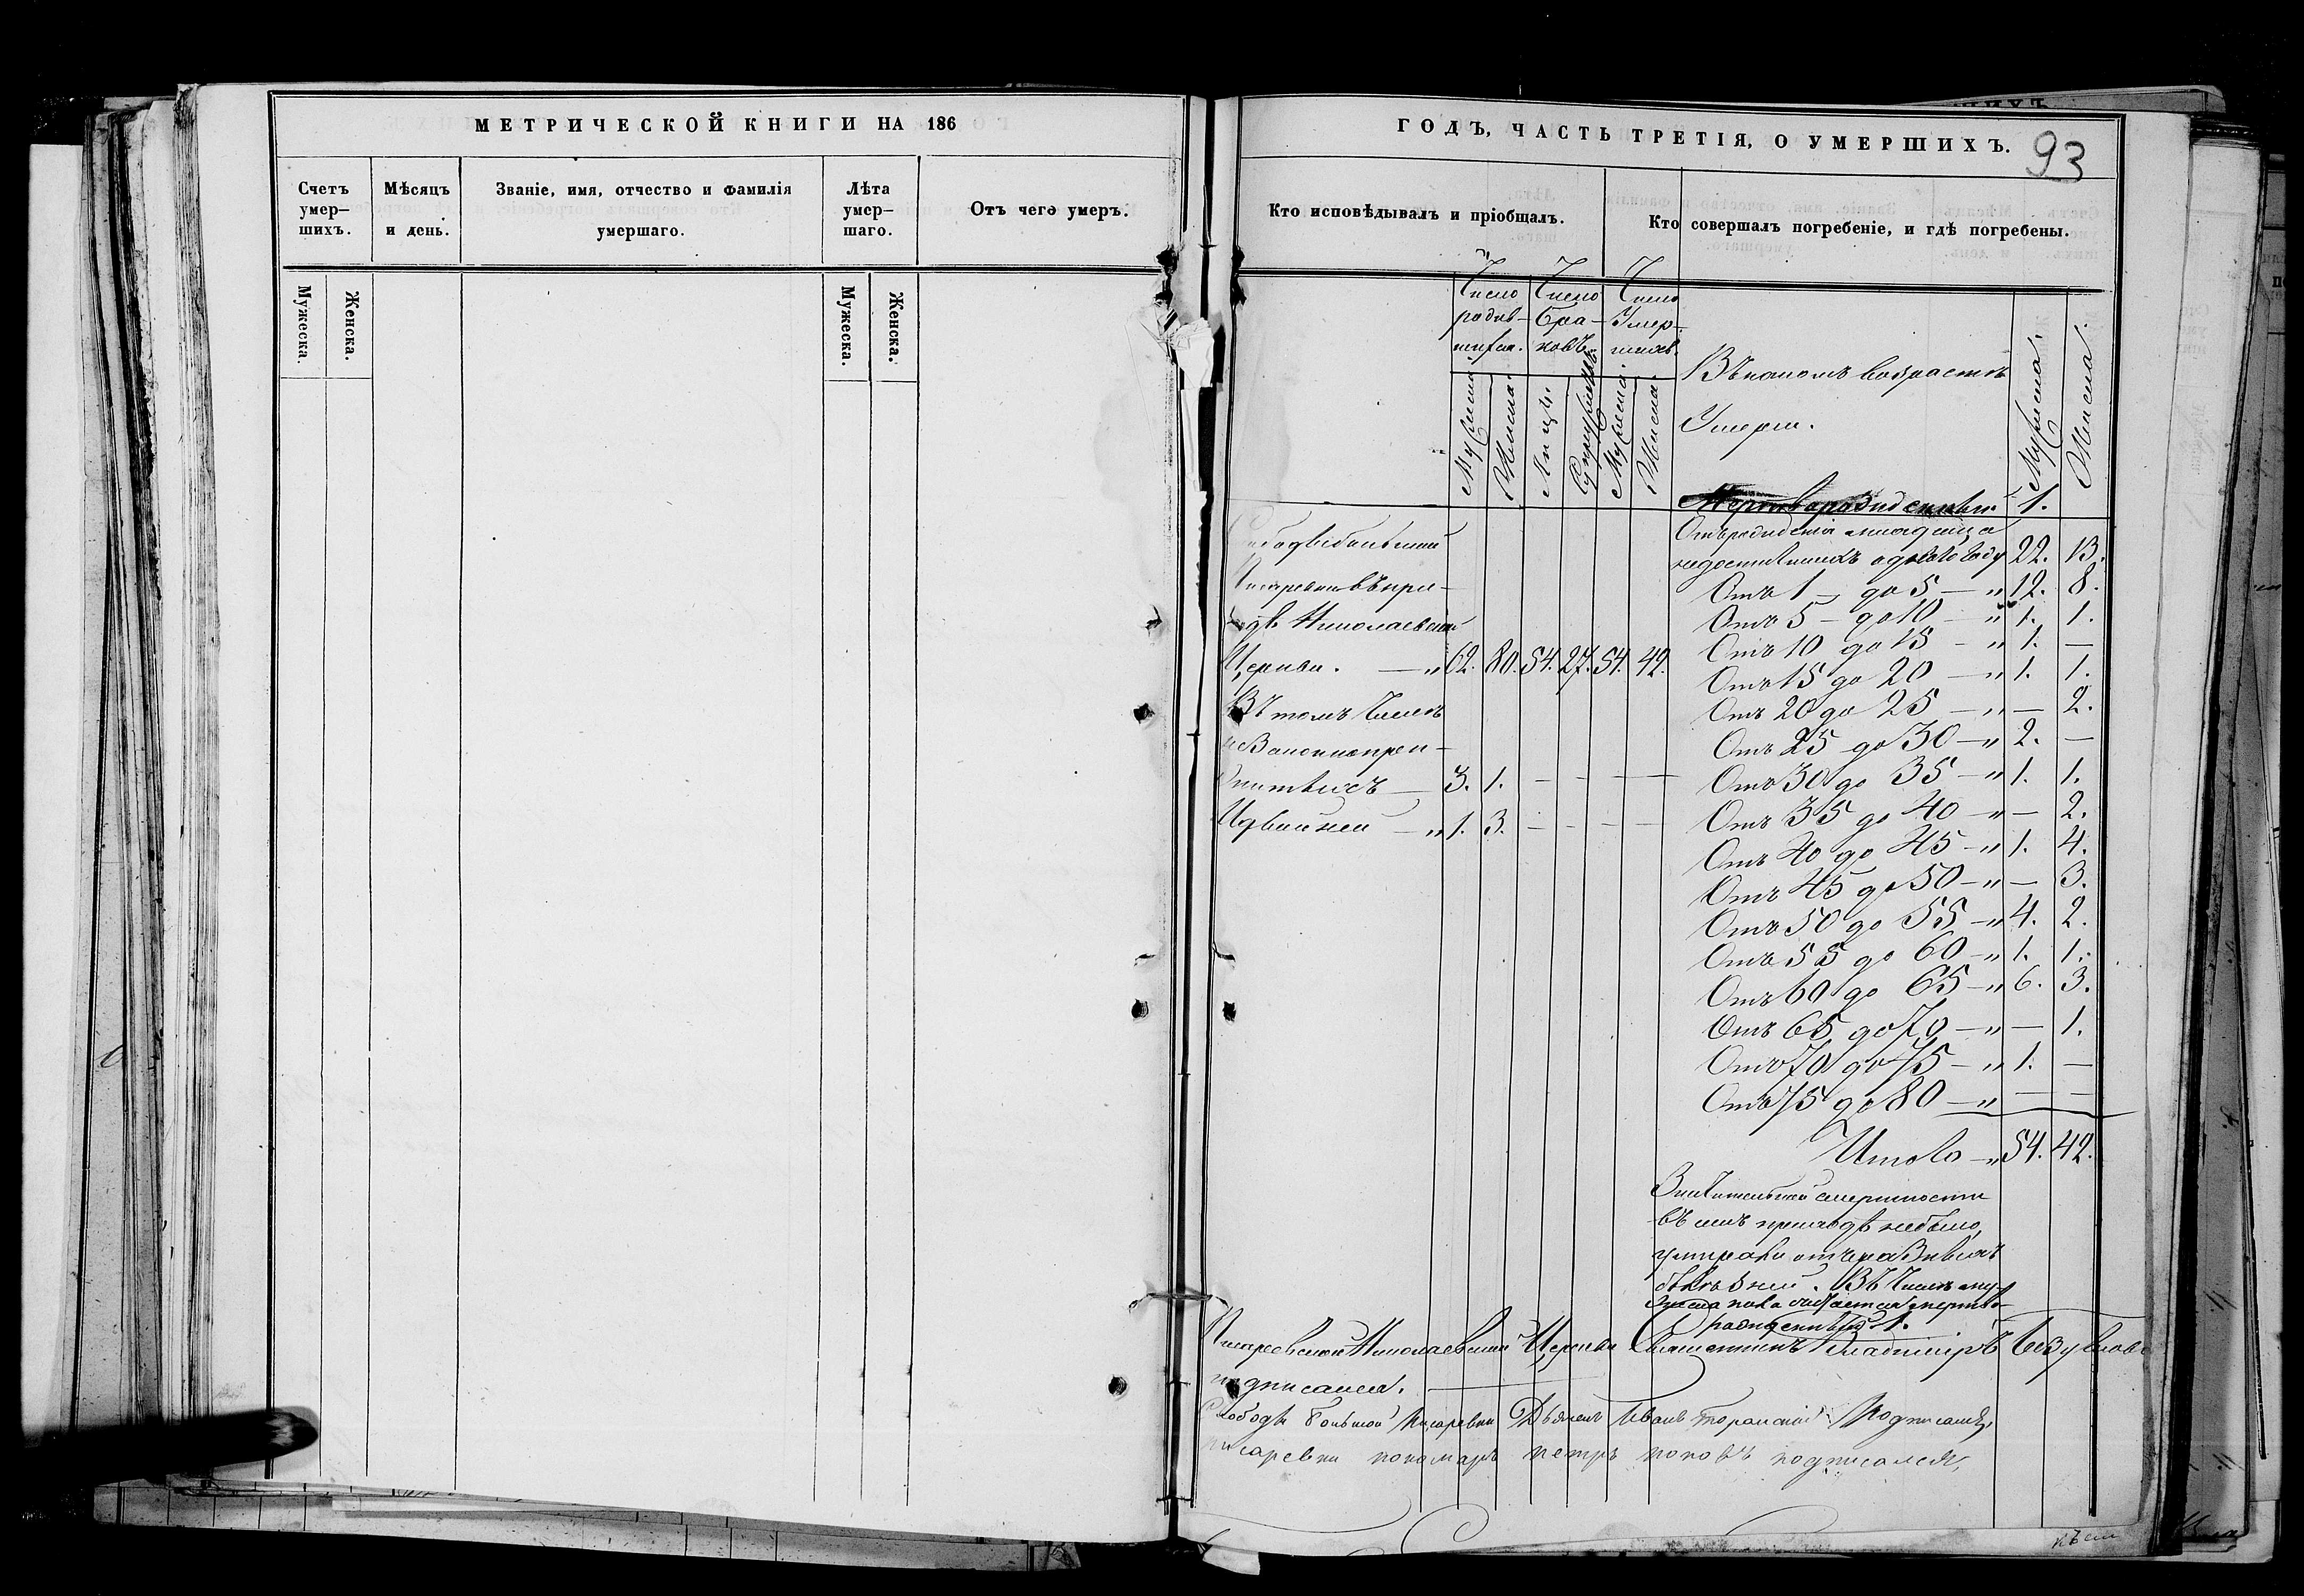 МЕТРИЧЕСКОЙ КНИГИ НА 186
Счетъ умер–шихъ.
Мѣсяцъ и день.
Званіе, имя, отчество и фамилія умершаго.
Лѣта умер–шаго.
Отъ чего умеръ.
Мужеска.
Женска.
Мужеска.
Женска.
ГОДЪ, ЧАСТЬ ТРЕТІЯ, О УМЕРШИХЪ.
93
Кто исповѣдывалъ и пріобщалъ.
Кто совершалъ погребеніе, и гдѣ погребены.
Число родив–шихся.
Число бра–ковъ.
Число Умер–шихъ.
Въ какомъ возрастѣ
Умерли.
Мужеска.
Женска.
Мужеска
Женска
Лицъ.
Супружествъ
Мужеска
Женска
Мертворожденный 1.
Отъ рожденія младенца
недостигшихъ одного году 22. 13.
Отъ 1 – до 5 – „ 12. 8.
Отъ 5 – до 10 – „ 1. 1.
Отъ 10 до 15 – „ 1. –
Отъ 15 до 20 – „ 1. 1.
Отъ 20 до 25 – „ – 2.
Отъ 25 до 30 – „ 2. –
Отъ 30 до 35 – „ 1. 1.
Отъ 35 до 40 – „ – 2.
Отъ 40 до 45 – „ 1. 4.
Отъ 45 до 50 – „ – 3.
Отъ 50 до 55 – „ 4. 2.
Отъ 55 до 60 – „ 1. 1.
Отъ 60 до 65 – „ 6. 3.
Отъ 65 до 70 – „ – 1.
Отъ 70 до 75 – „ 1. –
Отъ 75 до 80 – „ – –
Итого – „ 54. 42.
Слободѣ большой
Писаревки въ при–
ходѣ Николаевской
Церкви. – „ 62. 80. 54. 27. 54. 42.
Въ томъ числѣ
незаконнопри–
житыхъ – 3. 1. – – – –
И двойней – „ 1. 3. – – – –
Значительной смертности
въ семъ приходѣ небыло,
умирали отъ разныхъ
болѣзней. Въ числѣ му–
жеска пола считается мертво–
рожденный 1.
Писаревской Николаевской Церкви Священникъ Владиміръ
подписался.
Слободы большой Писаревки Дьячекъ Иванъ подписался,
Писаревки пономарь петръ поповъ подписался,